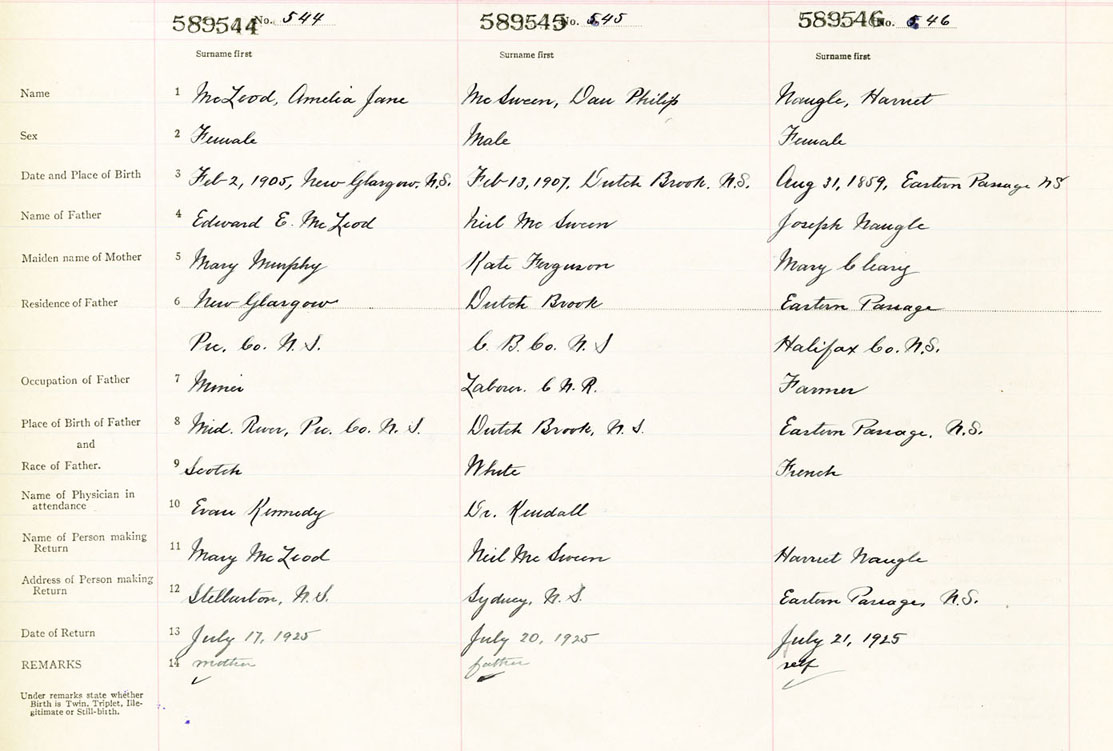 589544 No. 544 589545 No. 545 589546 No. 546
Surname first Surname first Surname first
Name 1 McLeod, Amelia Jane Mc Sween, Dan Philip Naugle, Harriet
Sex 2 Female Male Female
Date and Place of Birth 3 Feb 2, 1905, New Glasgow, N.S. Feb 13, 1907, Dutch Brook, N.S. Aug 31, 1859, Eastern Passage NS
Name of Father 4 Edward E. McLeod Neil Mc Sween Joseph Naugle
Maiden name of Mother 5 Mary Murphy Kate Ferguson Mary Cleary
Residence of Father 6 New Glasgow Dutch Brook Eastern Passage
Pic. Co. N.S. C. B. Co. N.S Halifax Co. N.S.
Occupation of Father 7 Miner Labour. C N.R. Farmer
Place of Birth of Father 8 Mid. River, Pic. Co. N.S. Dutch Brook, N.S. Eastern Passage, N.S.
and
Race of Father. 9 Scotch White French
Name of Physician in
attendance 10 Evan Kennedy Dr. Kendall
Name of Person making
Return 11 Mary McLeod Neil Mc Sween Harriet Naugle
Address of Person making
Return 12 Stellarton, N.S. Sydney, N.S. Eastern Passage, N.S.
Date of Return 13 July 17, 1925 July 20, 1925 July 21, 1925
REMARKS 14 mother father self
Under remarks state whether
Birth is Twin, Triplet, Ille-
gitimate or Still-birth.